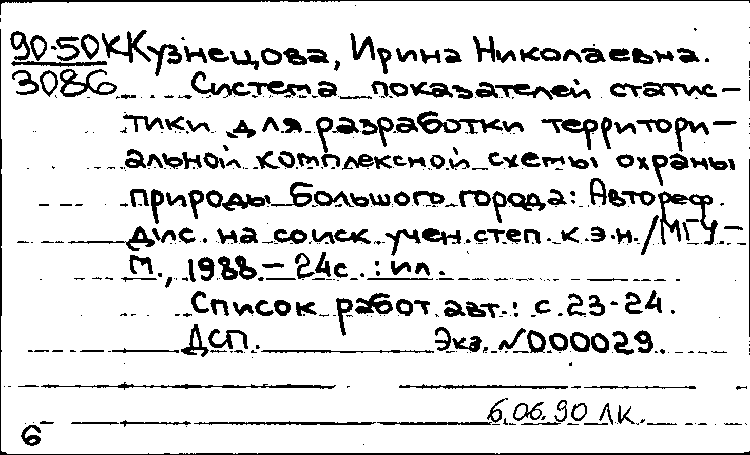 90-50К Кузнецова, Ирина Николаевна.
3086 Система показателей статис-
тики для разработки территори-
альной комплексной схемы охраны
природы большого города: Автореф.
дис. на соиск. учен. степ. к.э.н./МГУ-
М., 1988.-24с.:ил.
Список работ авт.: с.23-24.
ДСП. Экз. №000029.
6.06.90 ЛК.
6